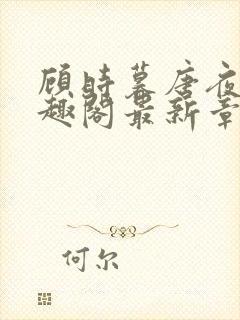 顾时暮唐夜
趣阁最新章
何尔